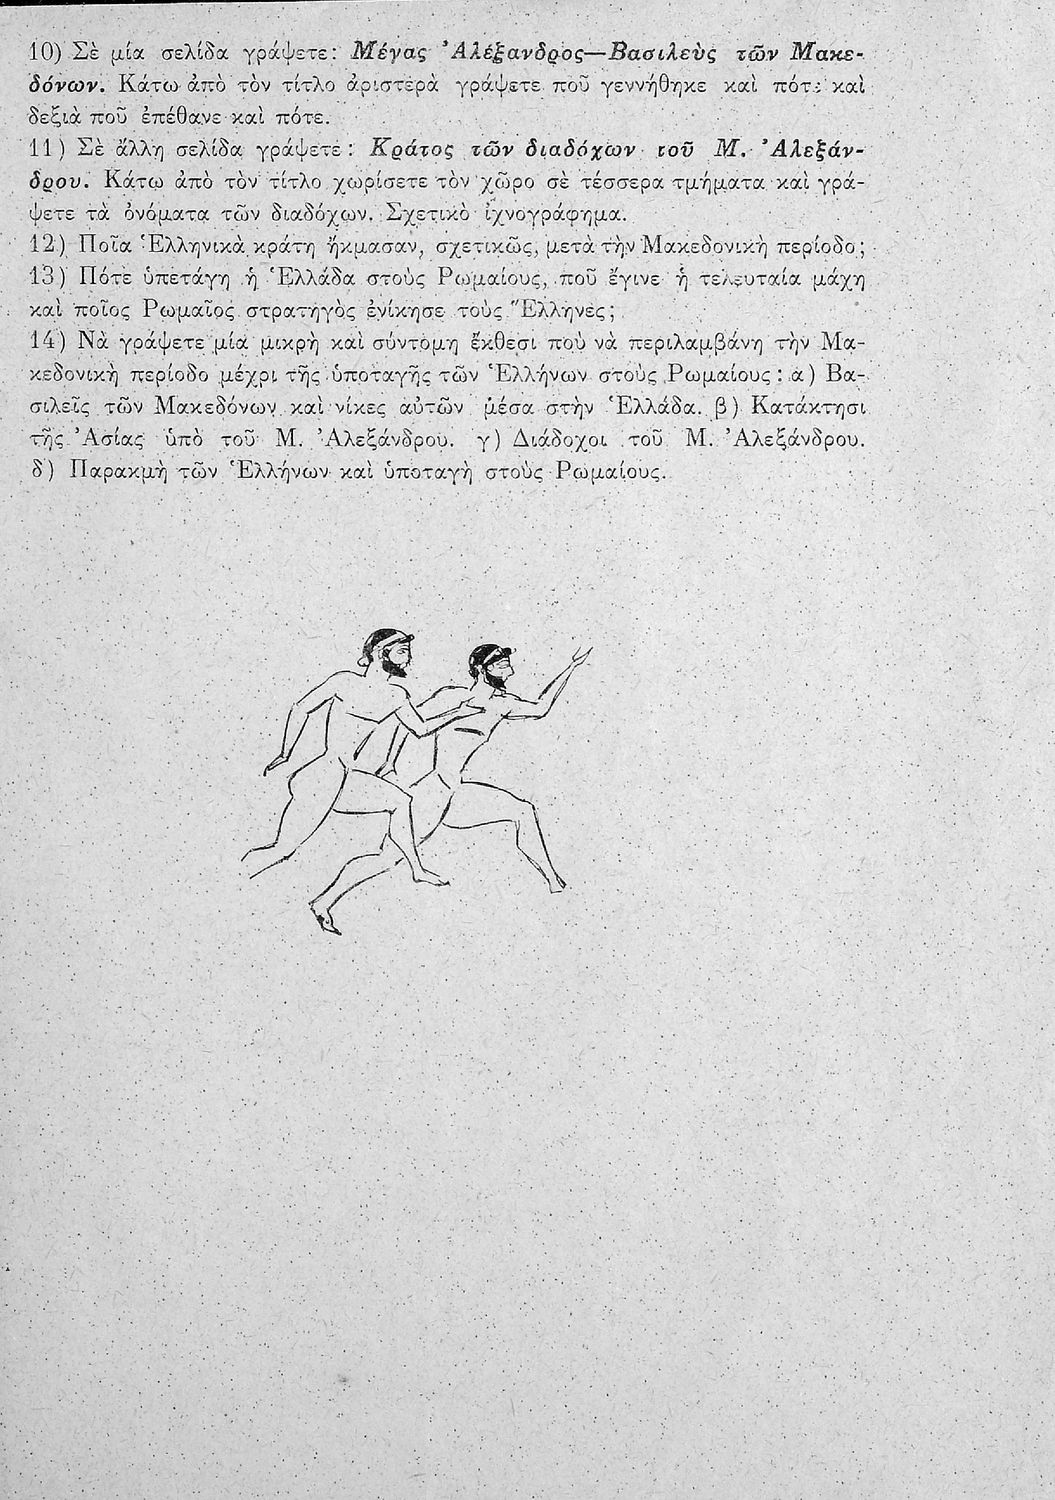 10) Σὲ μία σελίδα γράψετε: Μέγας Ἀλέξανδρος—Βασιλεὺς τῶν Μακε-
δόνων. Κάτω ἀπὸ τὸν τίτλο ἀριστερὰ γράψετε ποῦ γεννήθηκε καὶ πότε καὶ
δεξιὰ ποῦ ἐπέθανε καὶ πότε.
11) Σὲ ἄλλη σελίδα γράψετε: Κράτος τῶν διαδόχων τοῦ Μ. Ἀλεξάν-
δρου. Κάτω ἀπὸ τὸν τίτλο χωρίσετε τὸν χῶρο σὲ τέσσερα τμήματα καὶ γρά-
ψετε τὰ ὀνόματα τῶν διαδόχων. Σχετικὸ ἰχνογράφημα.
12) Ποῖα Ἑλληνικὰ κράτη ἤκμασαν, σχετικῶς, μετὰ τὴν Μακεδονικὴ περίοδο;
13) Πότε ὑπετάγη ἡ Ἑλλάδα στοὺς Ρωμαίους, ποῦ ἔγινε ἡ τελευταία μάχη
καὶ ποῖος Ρωμαῖος στρατηγὸς ἐνίκησε τοὺς Ἕλληνες;
14) Νὰ γράψετε μία μικρὴ καὶ σύντομη ἔκθεσι ποὺ νὰ περιλαμβάνη τὴν Μα-
κεδονικὴ περίοδο μέχρι τῆς ὑποταγῆς τῶν Ἑλλήνων στοὺς Ρωμαίους: α) Βα-
σιλεῖς τῶν Μακεδόνων καὶ νίκες αὐτῶν μέσα στὴν Ἑλλάδα. β) Κατάκτησι
τῆς Ἀσίας ὑπὸ τοῦ Μ. Ἀλεξάνδρου. γ) Διάδοχοι τοῦ Μ. Ἀλεξάνδρου.
δ) Παρακμὴ τῶν Ἑλλήνων καὶ ὑποταγὴ στοὺς Ρωμαίους.